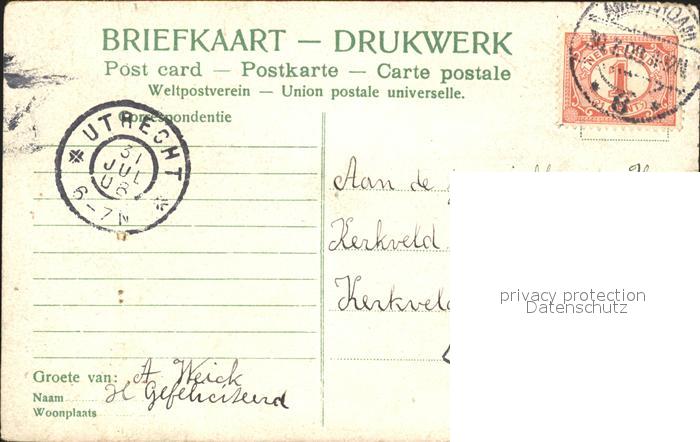 BRIEFKAART — DRUKWERK
Post card — Postkarte — Carte postale
Weltpostverein — Union postale universelle.
Correspondentie
UTRECHT
31
JUL
08
6-7N
AMSTERDAM
8
1
Aan de
Kerkveld
Kerkveld
privacy protection
Datenschutz
Groete van: A Weick
Naam H Gefeliciteerd
Woonplaats